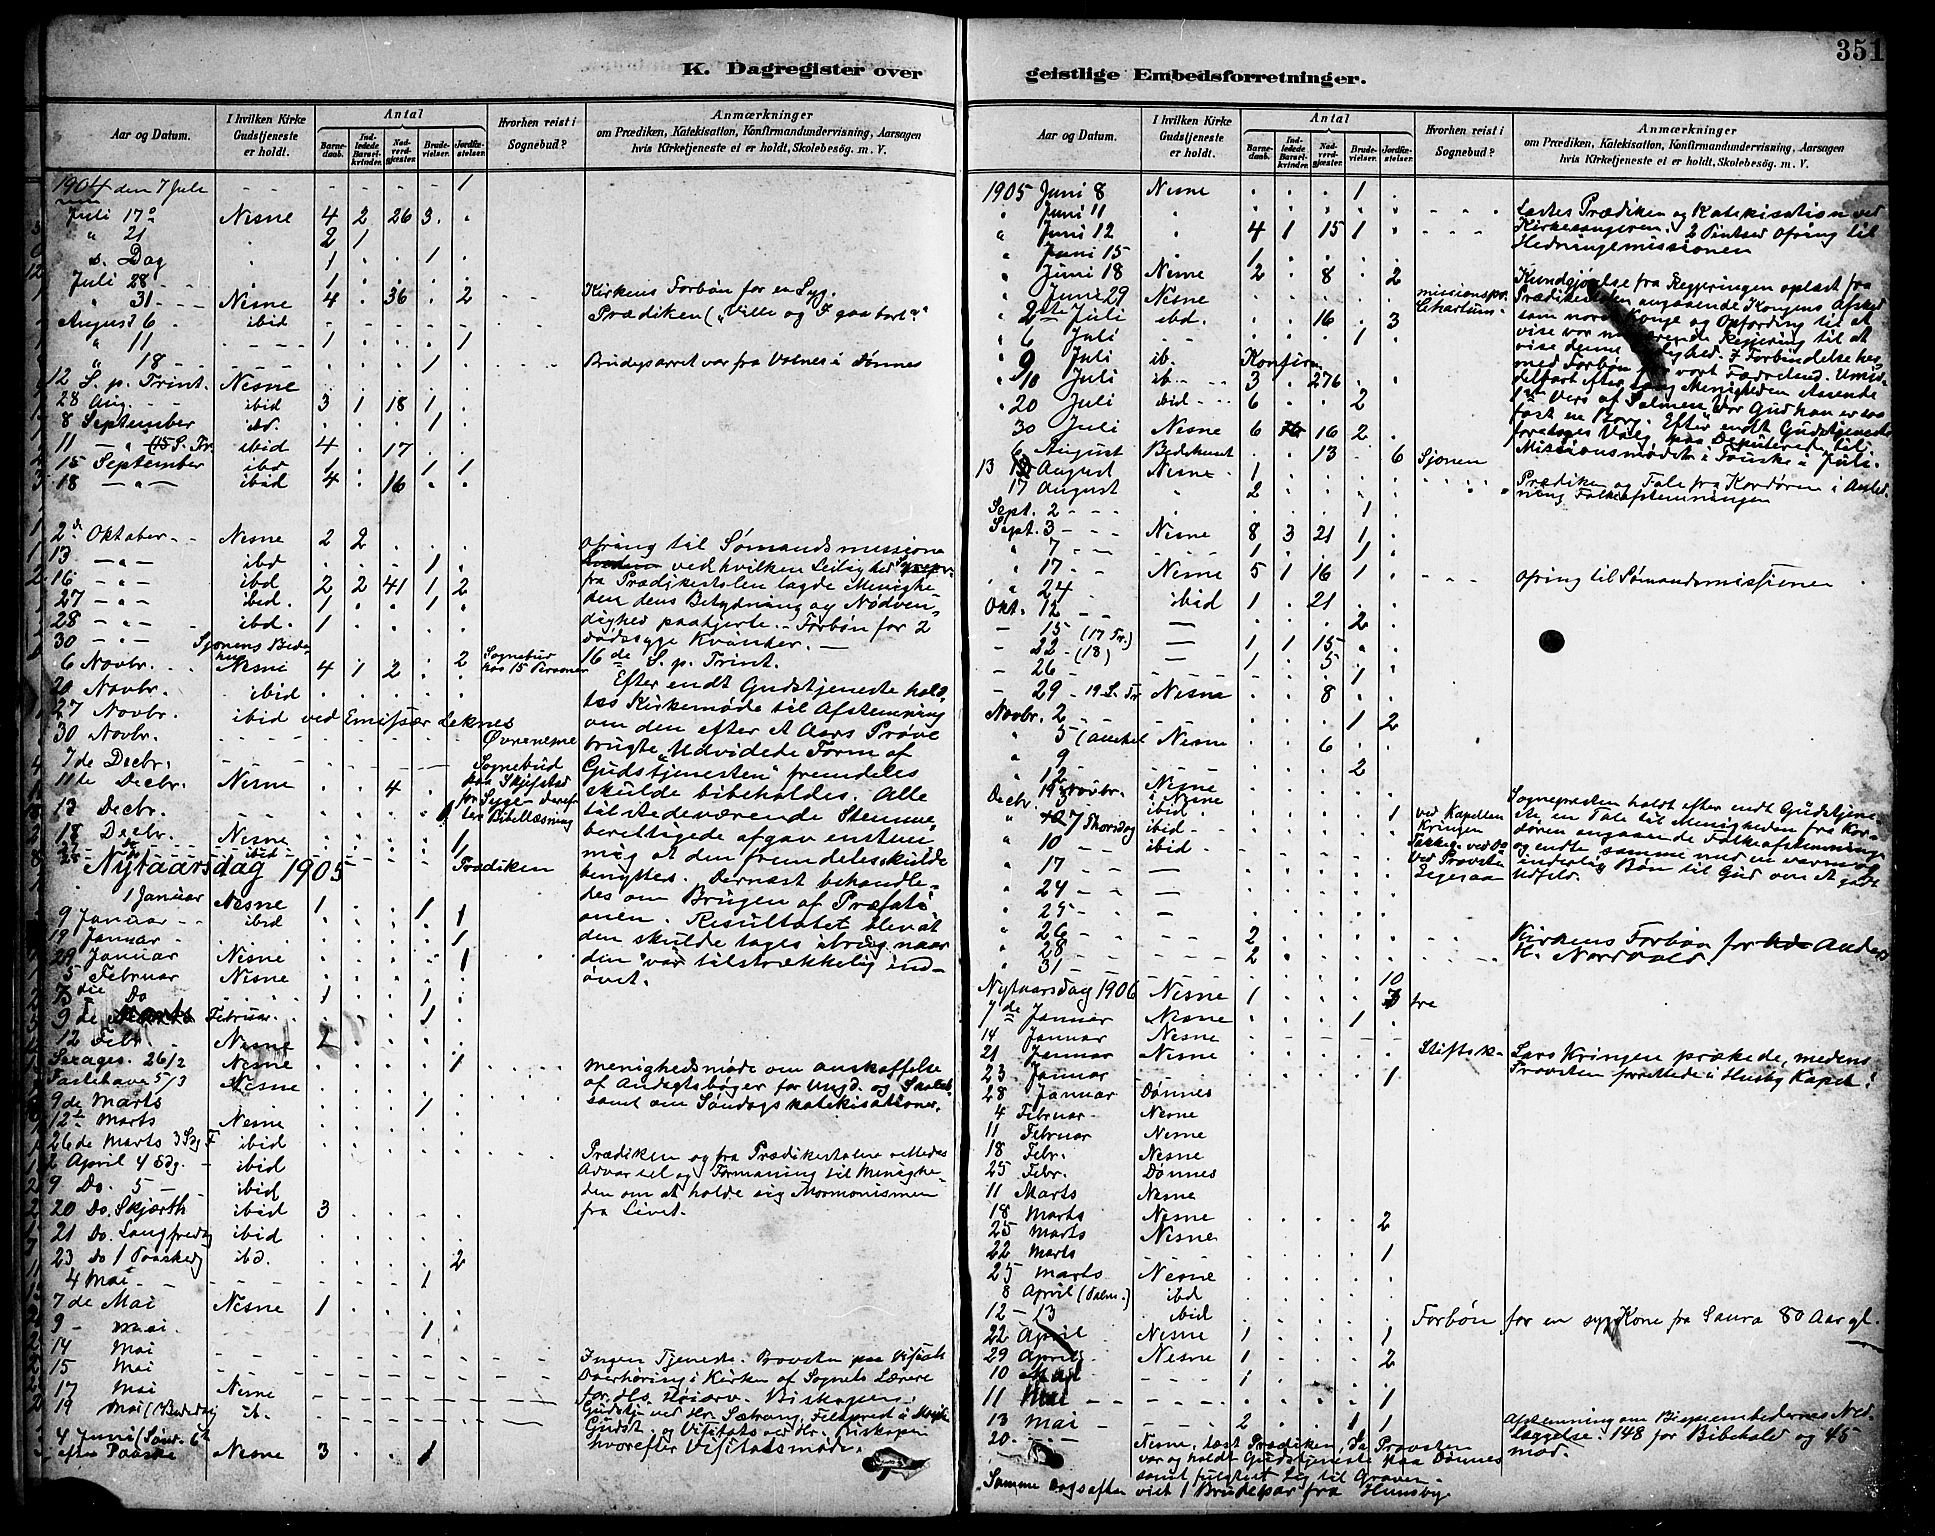 K. Dagregister over
Aar og Datum.
I hvilken Kirke Gudstjeneste er holdt.
Antal
Barnedaab.
Indledede Barselkvinder.
Nadverdgjester.
Brudevielser.
Jordfæstelser.
Hvorhen reist i Sognebud?
Anmærkninger
om Prædiken, Katekisation, Konfirmandundervisning, Aarsagen
hvis Kirketjeneste ei er holdt, Skolebesøg. m. V.
1904 den 7 Juli - - - - - - 1
Juli 17 Nesne 4 2 26 3 .
" 21 . 2 1
s. Dag . 1 . . 1 .
Juli 28 - - . 1 . . . .
" 31 - - - Nesne 4 . 36 . 2 - - Kirkens Forbøn for en Syg.
August 6 . ibid . . . . . Prædiken ("Ville og I gaa bort?"
" 11 - - - - 1 . . . 1
" 18 - - - - - . . . 1 . Brudeparret var fra Valnes i Dønnes
12 S. p. Trint. Nesne . . . . .
28 Aug. - - ibid 3 1 18 1 .
8 September ibd. . . . 1 .
11 - " - (15 S. Tr. ibid 4 . 17 . .
15 September ibd 1 . . 1 1
18 - " - ibid 4 . 16 . .
2 Oktober - - Nesne 2 2 . . .
13 - " - ibd . . . 1 .
16 - " - ibd 2 2 41 1 2
27 - " - ibid. 1 . . 1 .
28 - " - ibd. 1 . . . .
30 - " - Sjonens Bede
Ofring til Sømandsmissione
ved hvilken Leilighed
fra Prædikestolen lagde Menighe-
den dens Betydning og Nødven-
dighed paahjerte. - Forbøn for 2
dødssyge Kvinder. -
6 Novbr. - - Nesne 4 1 2 . 2 Sognebud hos 15 Personer
20 Novbr. ibid
27 Novbr. ibid ved Emissær Leknes
30 Novbr. - - - - - - - Øvrenesne
7 de Decbr. - - - - - - Sognebud
11 te Decbr. Nesne . . 4 . .
13 Decbr.
18 Decbr. Nesne . . . . 1
16 de S. p. Trint.
Efter endt Gudstjeneste hold-
tes Kirkemøde til Afstemning
om den efter et Aars Prøve
brugte "Udvidede Form af
Gudstjenesten" fremdeles
skulde bibeholdes. Alle
tilstedeværende Stemme-
berettigede afgav enstem-
mig at den fremdeles skulde
benyttes. Dernæst behandle-
des om Brugen af Præfati
onen. Resultatet blev at
den skulde tages ibrug naar
den var tilstrækkelig ind-
øvet.
Nytaarsdag 1905 Prædiken
1 Januar Nesne 1 . . 1 .
9 Januar - - ibid . . . . 1
19 Januar - . . . . 1
29 Januar Nesne . . . . 1
5 Februar Nesne . . . . .
Do . 1 . . 1 .
9 de Februar . . . . 1 .
12 Febr. Nesne 2 . . . .
Sexages. 26/2 Nesne . . . . 1
Fastelavn 5/3 Nesne . . . . .
9 de Marts . . . . 1 .
12 Marts Nesne . . . . .
Menighedsmøde om anskaffelse
af Andagtsbøger for Ungd. og
samt om Søndagskatekisationer.
26 de Marts 3 Sdg F ibid
2 April 4 Sdg. - ibid
9 Do. 5 - ibid
20 Do. Skjærth ibid 3 . . . .
21 Do. Langfredag ibid . . . . .
23 Do 1 Paaskedg ibd. . . . . 2
4 Mai - - - - . . . 1
7 de Mai Nesne 1 . . . .
9 - Mai. - - - - - 1
14 Mai
15 Mai
17 Mai Nesne
19 Mai (Bededag ib.
4 Juni (Sønd. 6te
efter Paaske Nesne 3 . . 1
Prædiken og fra Prædikestolen rettedes
Advarsel og Formaning til Menighe-
den om at holde sig Mormonismen
fra Livet.
Ingen Tjeneste. Provsten paa Visitats
Overhøring i Kirken af Sognets Lærere
Biskopen.
hvorefter Visitatsmøde.
351
geistlige Embedsforretninger.
Aar og Datum.
I hvilken Kirke Gudstjeneste er holdt.
Antal
Barnedaab.
Indledede Barselkvinder.
Nadverdgjester.
Brudevielser.
Jordfæstelser.
Hvorhen reist i Sognebud?
Anmærkninger
om Prædiken, Katekisation, Konfirmandundervisning, Aarsagen
hvis Kirketjeneste ei er holdt, Skolebesøg. m. V.
1905 Juni 8 Nesne . . . 1 .
" Juni 11 " . . . . .
" Juni 12 " 4 1 15 1 .
" Juni 15 1 . . . .
" Juni 18 Nesne 2 . 8 . 2
" Juni 29 Nesne . . . . .
" 2 Juli ibd. . . 16 . 3
" 6 Juli - - . . . 1 .
" 9 Juli ib. Konfirm
" 10 Juli ib. - - 3 . 276 . .
" 20 Juli ibid - - 6 . . 2
30 Juli Nesne 6 16 2 .
6 August Bedehuset . . 13 . 6 Sjonen
13 August Nesne - 1 . . . .
17 August " 2 . . . .
Læstes Prædiken og Katekisation ved
Kirkesangeren. 2 Pintsed. Ofring til
Hedningemissionen
Kundgjørelse fra Regjeringen oplæst fra
Prædikestolen angaaende Kongens Afsked
som norsk Konge og Opfordring til at
vise vor nuværende Regjering til at
vise denne Lydighed. I Forbindelse her
med Forbøn for vort Fædreland. Umid-
delbart efter sang Menigheden staaende
1ste Vers af Salmen "Vor Gud han er saa
fast en Borg. Efter endt Gudstjeneste
foretoges Valg paa Deputeret til
Missionsmødet i Fauske i Juli.
Prædiken og Tale fra Kordøren i Anled-
ning Folkeafstemningen
Sept. 2 - - - . . . 1 .
Sept. 3 - - - Nesne 8 3 21 1 .
" 7 - - - 1 . . 1 .
" 17 - - Nesne 5 1 16 1 . - - - Ofring til Sømandsmissionen
" 24 - - ibid 1 . 21 . .
Okt. 12 - - . . . 2 .
- 15 (17 Tr.) - 1 1 15 . .
- 22 - (18) - 1 . 5 . .
- 26 - - . . . 1 .
- 29 - 19 S. Tr Nesne . . 8 . .
Novbr. 2 - - - - . . . 1 2
" 5 Nesne . . 6 . .
" 9 - - - - . . . 2 .
" 12 Novbr. Nesne
Decbr. 3 i Nesne
" 7 Thorsdag ibid - . . . . 1
" 10 - - ibid -
" 17 - - -
" 24 - - -
" 25 - - -
" 26 - - - 2 . . . .
" 28 - - - - 2
" 31 - -
ved Kapellan
Kringen
ved Provsten
Ligesaa
Sognepresten holdt efter endt Gudstjene-
ste en Tale til Menigheden fra Kor-
døren angaaende Folkeafstemning
og endte samme med en varm og
inderlig Bøn til Gud om et godt
Udfald.
Kirkens Forbøn for Anders
K. Nordvold.
Nytaarsdag 1906 Nesne 1 . . . 10
7 de Januar Nesne . . . 1 .
14 Januar Nesne
21 Januar Nesne
23 Januar - . . . . 1
28 Januar Dønnes
Stiftsk- Lars Kringen prækede, medens
Provsten forrettede i Husby Kapel.
4 Februar Nesne
11 Februar Nesne
18 Febr. Nesne
25 Febr. Dønnes
11 Marts Nesne
18 Marts Nesne . . . . 2
25 Marts Nesne
22 Marts - . . . . 1
25 Marts Nesne
8 April (Palm.) ibd
12 - 13 ibid
Forbøn for en syg Kone fra Saura 80 Aar gl.
22 April Nesne 1 . . . 1
29 April Nesne 1 . . . 2
10 Mai - - - - 1 . . . .
11 Mai - - - . . . . 1
13 Mai - - 2 . . 1 1
20 - - -
Afstemning om Bispeembedernes Ned-
læggelse. 148 for Bibehold og 45
mod.
Nesne, læst Prædiken, da Provsten
var og holdt Gudstjeneste paa Dønnes
samt fulgte et Lig til Graven.
Samme Dags aften viet 1 Brudepar fra Husby